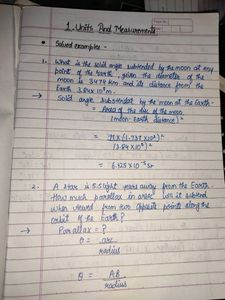 1. Units And Measurements
• Solved examples -
1. What is the solid angle subtended by the moon at any
point of the Earth, given the diameter of the
moon is 3474 km and its distance from the
Earth 3.84 x 10⁸ m.
→ Solid angle subtended by the moon at the Earth -
= Area of the disc of the moon
(moon-earth distance)²
= π x (1.737 x 10⁶)²
(3.84 x 10⁸)²
= 6.425 x 10⁻⁵ Sr
2. A star is 5.5 light years away from the Earth.
How much parallax in arcsec will it subtend
when viewed from two opposite points along the
orbit of the Earth?
→ Parallax = ?
θ = arc
radius
θ = AB
radius